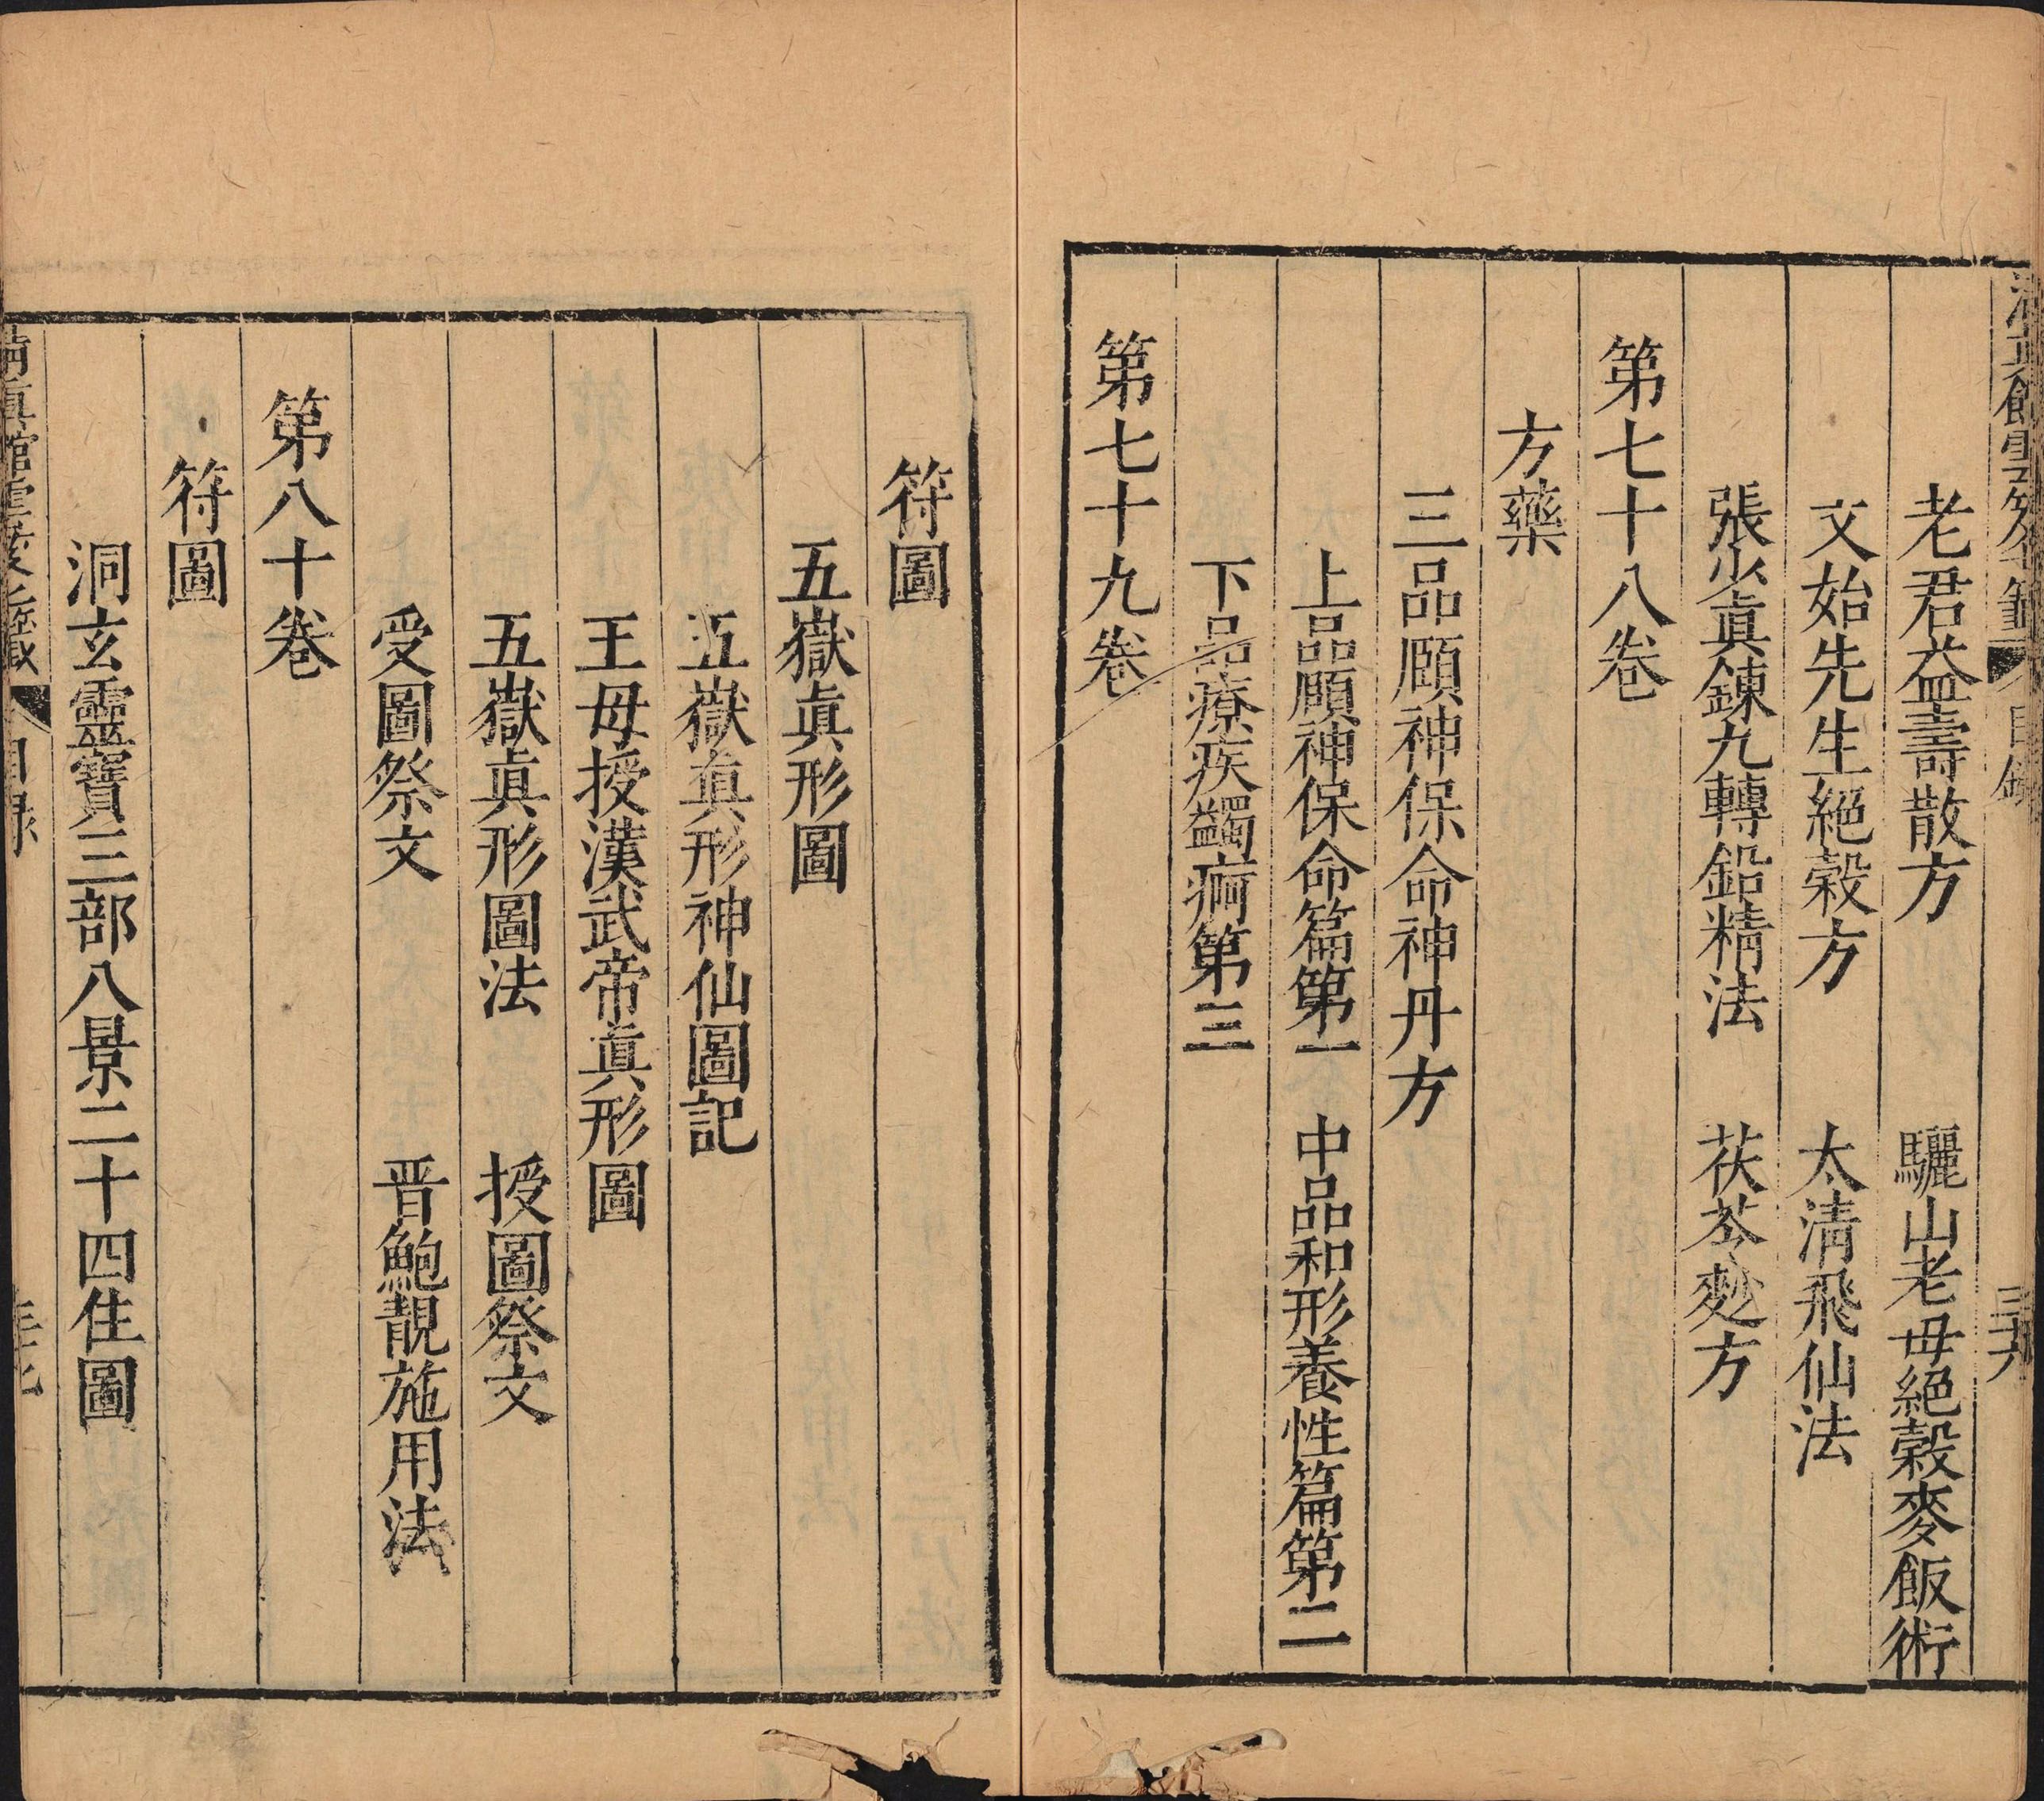 老君益壽散方　驪山老母絕穀麥飯術
文始先生絕穀方　太清飛仙法
張少眞鍊九轉鉛精法　茯苓麨方
第七十八卷
方藥
三品頥神保命神丹方
上品頥神保命篇第一　中品和形養性篇第二
下品療疾蠲痾第三
第七十九卷
符圖
五嶽眞形圖
五嶽眞形神仙圖記
王母授漢武帝眞形圖
五嶽眞形圖法　授圖祭文
受圖祭文　晋鮑靚施用法
第八十卷
符圖
洞玄靈寶三部八景二十四住圖
目録